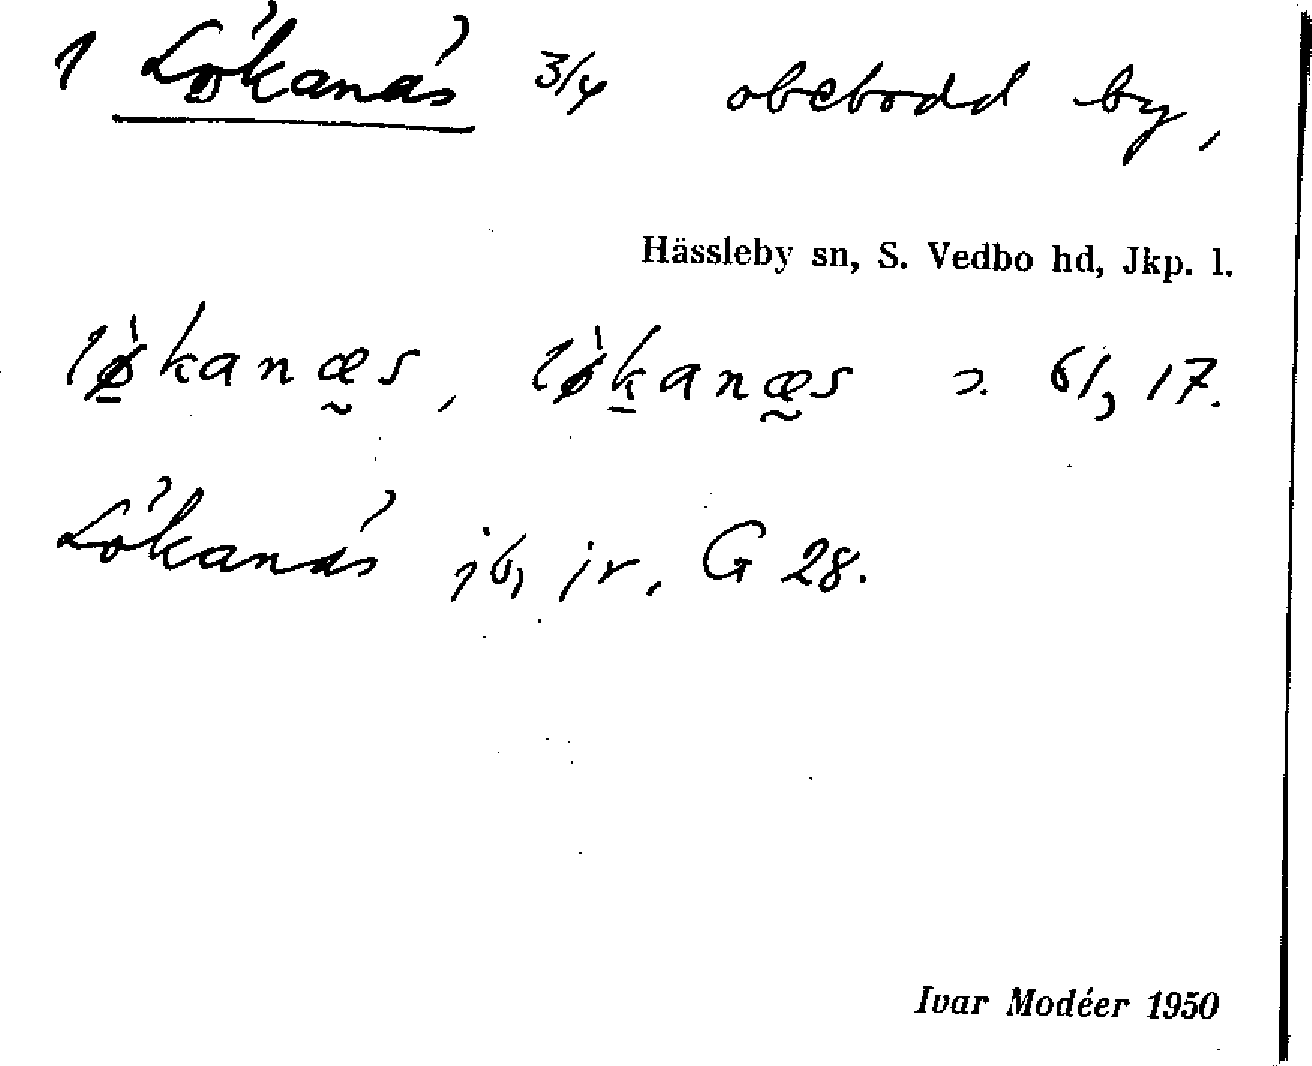 1 Lökanäs 3/4 obebodd by,
Hässleby sn, S. Vedbo hd, Jkp. l.
lø̀kanæs, lø̀kanæs
Lökanäs ib, jr, G 28.
Ivar Modéer 1950